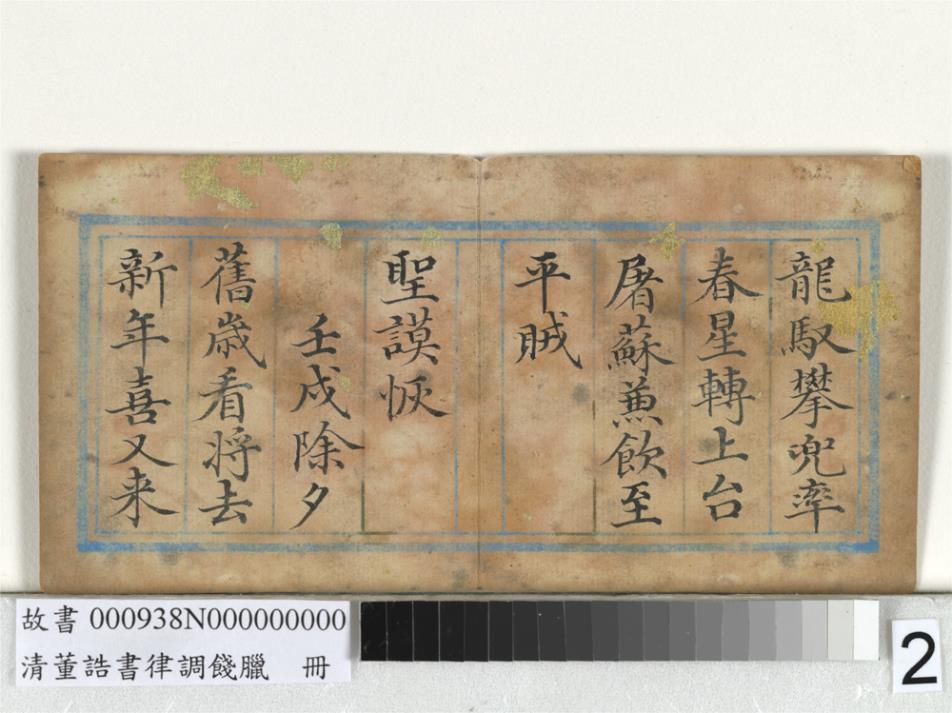 龍馭攀兜率
春星轉上台
屠蘇兼飲至
平賊
聖謨恢
壬戌除夕
舊歲看將去
新年喜又来
故書 000938N000000000
清董誥書律調餞臘 冊
2